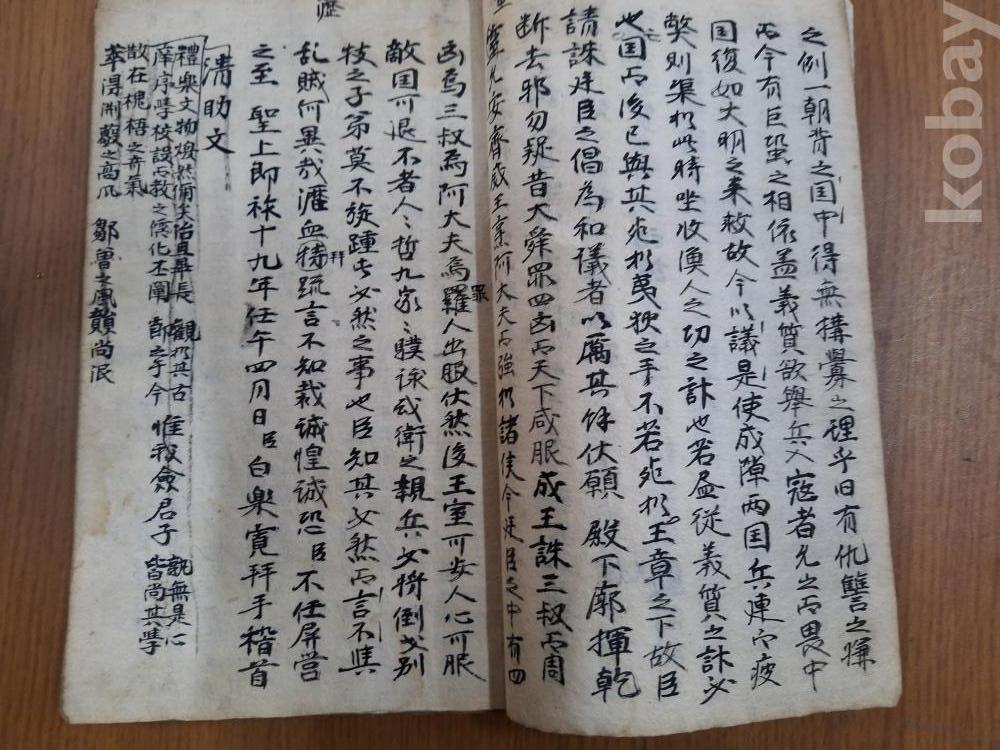 之例一朝背之国中得無搆釁之理乎旧有仇讐之嫌
而今有巨蛩之相依孟義質欲舉兵入寇者允之而畏中
国復如大明之来救故今以議是使成陣両国兵連而疲
獘則集於此時坐收漁人之功之計也若孟従義質之計必
也国而後已與其死於夷狄之手不若死於王章之下故臣
請誅廷臣之倡為和議者以厲其餘伏願 殿下廓揮乾
断去邪勿疑昔大舜罪四凶而天下咸服成王誅三叔而周
室九安齊威王烹阿大夫而強於諸侯今廷臣之中有四
凶為三叔為阿大夫為羅人出服伏然後王室可安人心可服
罪
敵国可退不者人〻哲九家〻䑃
衛之親兵必将倒戈别
技之子弟莫不旋踵此必然之事也臣知其必然而言不惧
乱賊何異哉瀝血特疏言不知裁诚惶诚恐臣不任屏营
拜
之至 聖上即祚十九年任午四月日臣白樂寛拜手稽首
清助文
禮樂文物煥然爾矣治且畢長 觀於其古 孰無是心
庠序學校設而教之儒化丕闡 式之于今 惟我僉君子 皆尚其學
散在槐梧之奇氣
萃得淵藪之高风 鄒魯之風韻尚泯
瀝
kobay